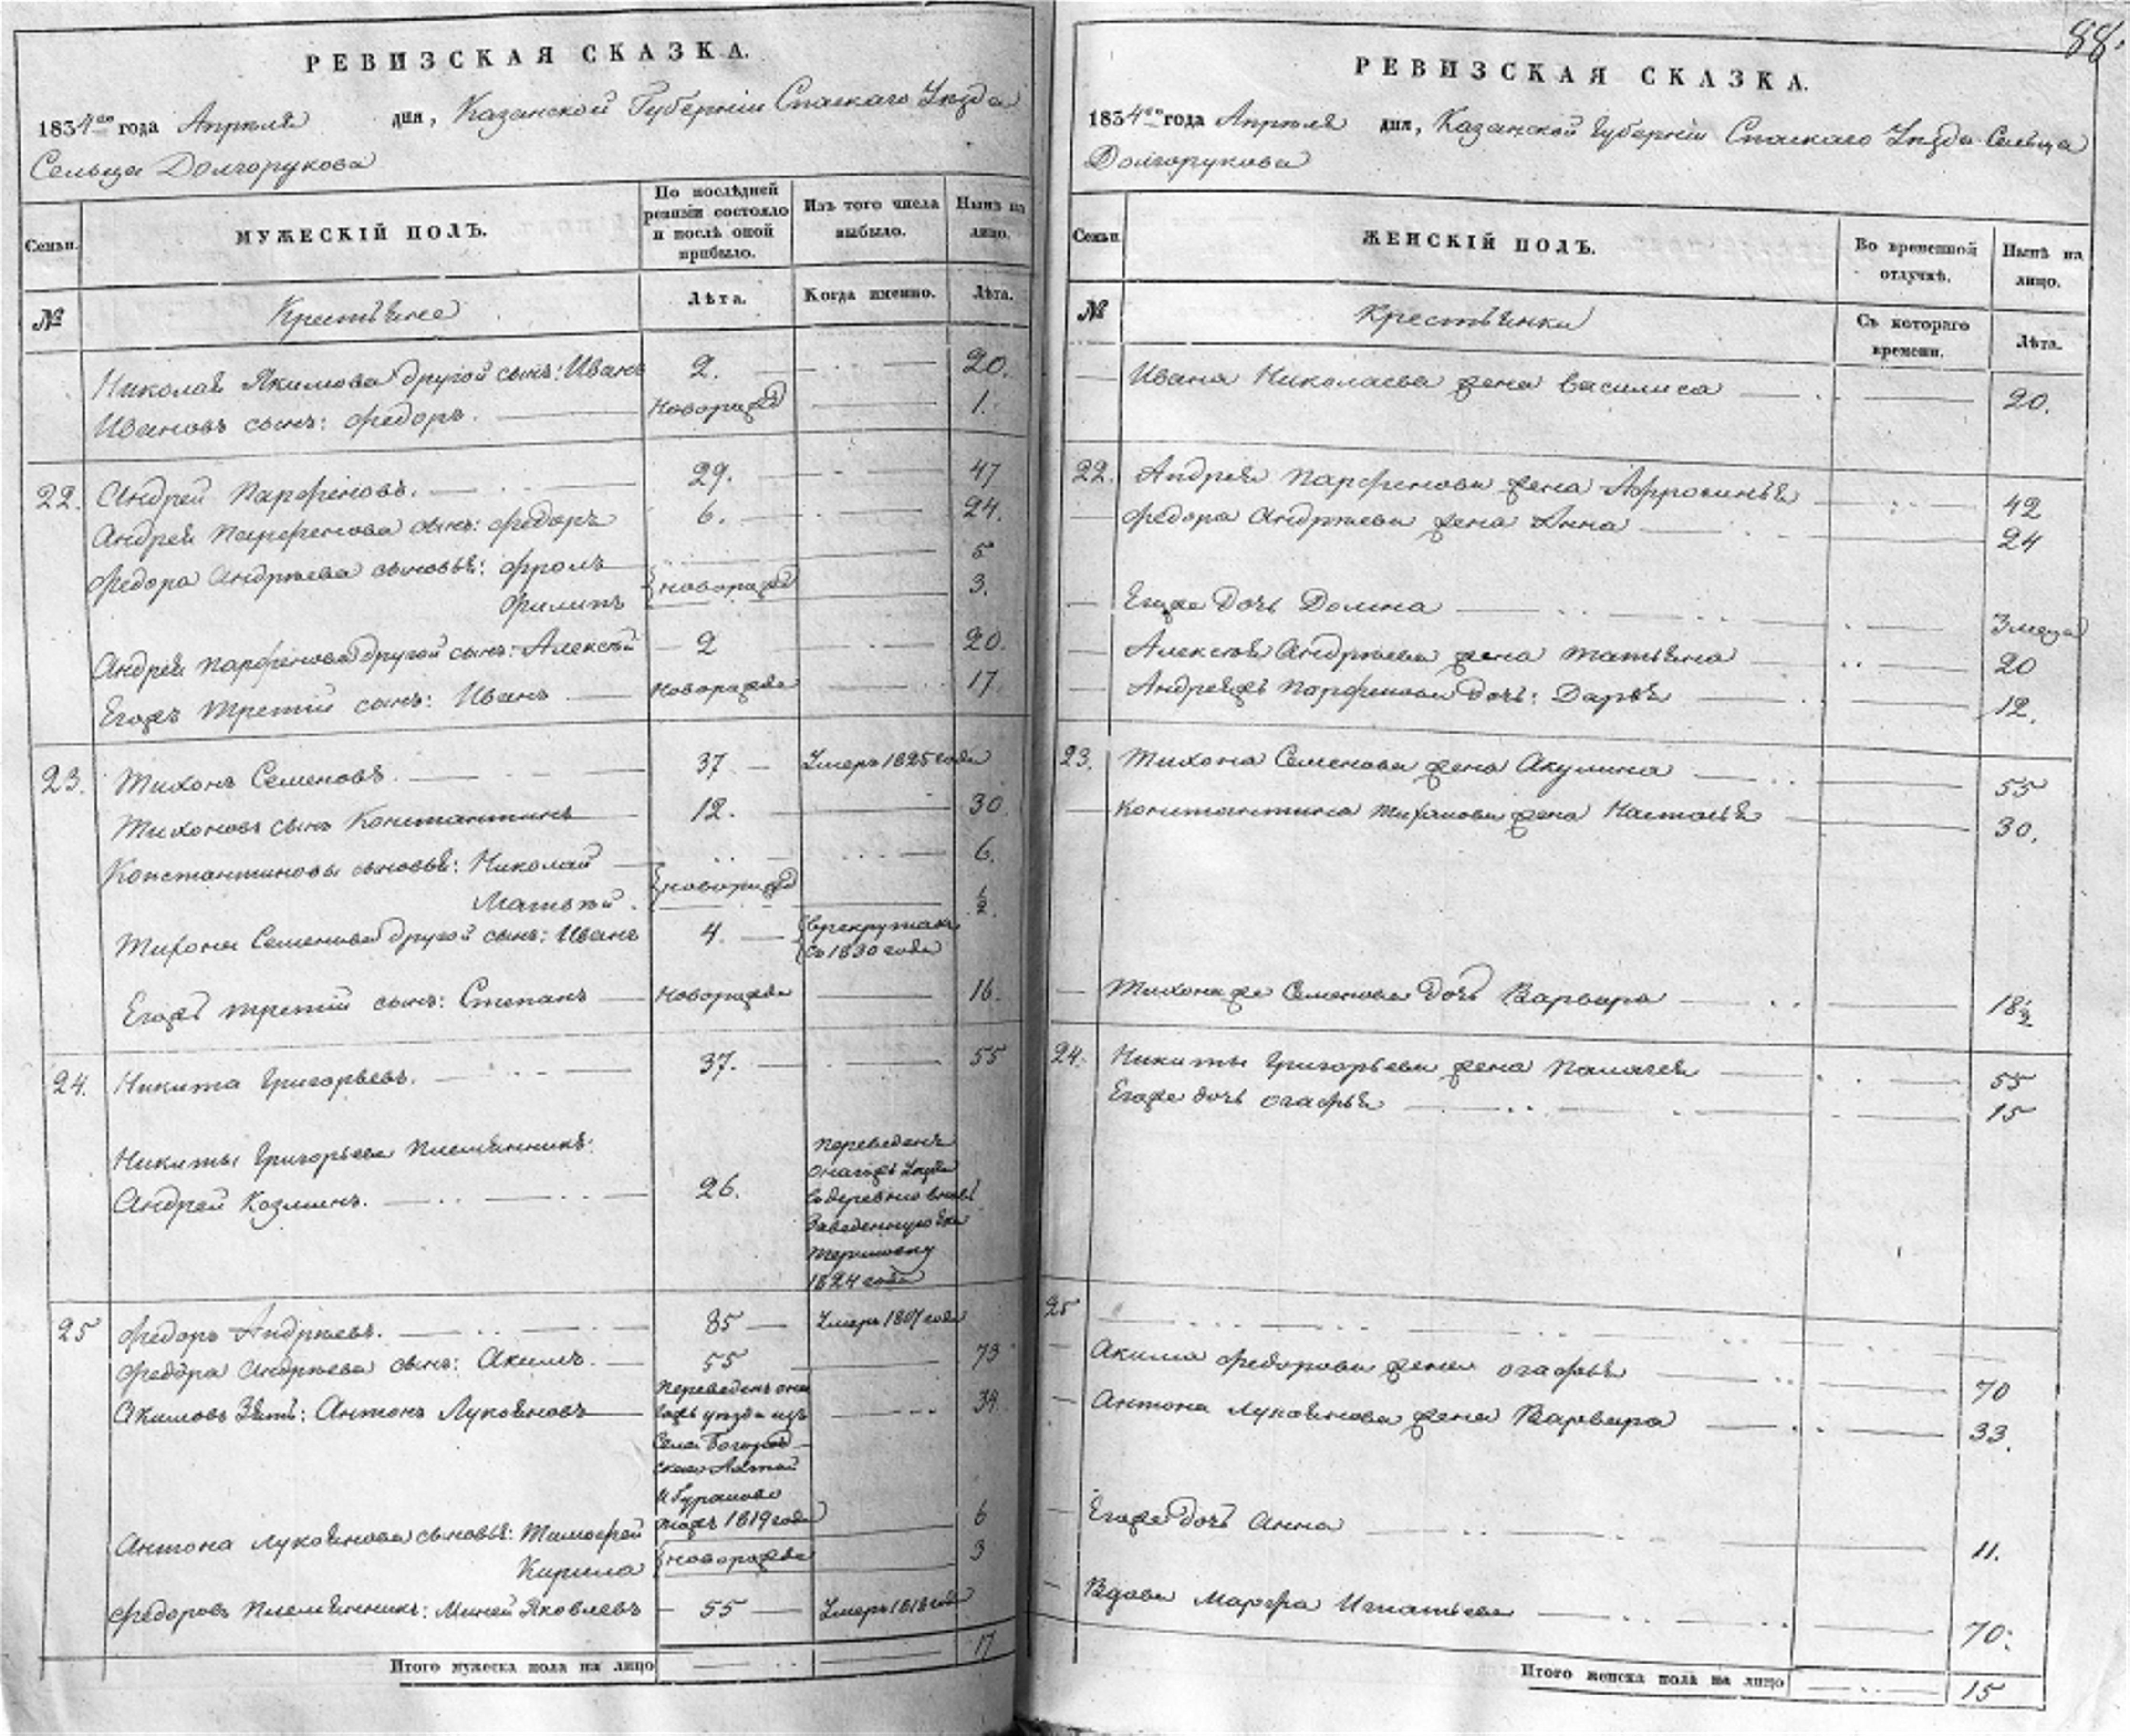 РЕВИЗСКАЯ СКАЗКА.
1834го года Апреля дня, Казанской Губернiи Спаскаго Уезда
Сельца Долгорукова
Семьи.
МУЖЕСКIЙ ПОЛЪ.
По послѣдней ревизiи состояло и послѣ оной прибыло.
Изъ того числа выбыло.
Нынѣ на лицо.
№
Крестьяне
Лѣта.
Когда именно.
Лѣта.
Николая Якимова другой сынъ: Иванъ 2. 20.
Ивановъ сынъ: Федоръ. новорожд 1.
22. Андрей Парфеновъ. 29. 47
Андрея Парфенова сынъ: Федоръ 6. 24.
Федора Андреева сыновья: Фролъ 5
Филипъ новорожд 3.
Андрея Парфенова другой сынъ: Алексей 2 20.
Егожъ третiй сынъ: Иванъ новорожде 17.
23. Тихонъ Семеновъ. 37 Умеръ 1825 года
Тихоновъ сынъ Константинъ 12. 30.
Константиновы сыновья: Николай 6.
Матвей. новорожд 1/2.
Тихона Семенова другой сынъ: Иванъ 4. в рекрутахъ
съ 1830 года
Егожъ третiй сынъ: Степанъ новорожде 16.
24. Никита Григорьевъ. 37. 55
Никиты Григорьева племянникъ:
Андрей Козминъ. 26. переведенъ
онагожъ Уезда
в деревню вновь
заведенную
1824 года
25 Федоръ Андреевъ. 85 Умеръ 1807 года
Федора Андреева сынъ: Акимъ. 55 73
Акимовъ Зять: Антонъ Лукояновъ переведенъ она 34.
гожъ уезда изъ
Села Богород
скаго
1819 года
Антона Лукоянова сыновья: Тимофей 6
Кирила новорожде 3
Федоровъ племянникъ: Миней Яковлевъ 55 Умеръ 1818 года
Итого мужеска пола на лицо 17
88.
РЕВИЗСКАЯ СКАЗКА.
1834го года Апреля дня, Казанской Губернiи Спаскаго Уезда Сельца
Долгорукова
Семьи
ЖЕНСКIЙ ПОЛЪ.
Во временной отлучкѣ.
Нынѣ на лицо.
№
Крестьянки
Съ котораго времени.
Лѣта.
Ивана Николаева жена Василиса 20.
22. Андрея Парфенова жена Афросинья 42
Федора Андреева жена Анна 24
Егоже дочь Домна 3 меца
Алексея Андреева жена Татьяна 20
Андреяжъ Парфенова дочь: Дарья 12.
23. Тихона Семенова жена Акулина 55
Константина Тихонова жена Настасья 30.
Тихона же Семенова дочь Варвара 18 1/2
24. Никиты Григорьева жена Палагея 55
Егоже дочь Огафья 15
25
Акима Федорова жена Огафья 70
Антона Лукоянова жена Варвара 33.
Егоже дочь Анна 11.
Вдова Марфа Игнатьева 70.
Итого женска пола на лицо 15